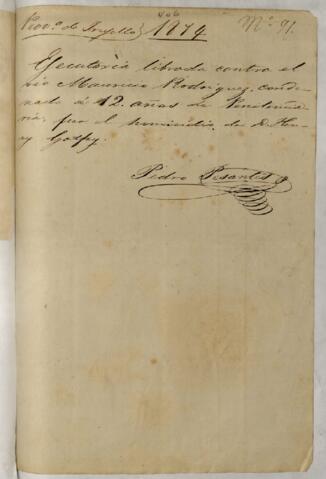 406
Prov.ª de Trujillo 1874. Nº 91.
Ejecutoria librada contra el
reo Mauricio Rodriguez, conde
nado á 12. años de Penitencia
ria, por el homicidio de D. Hen
ry
Pedro Pesantes